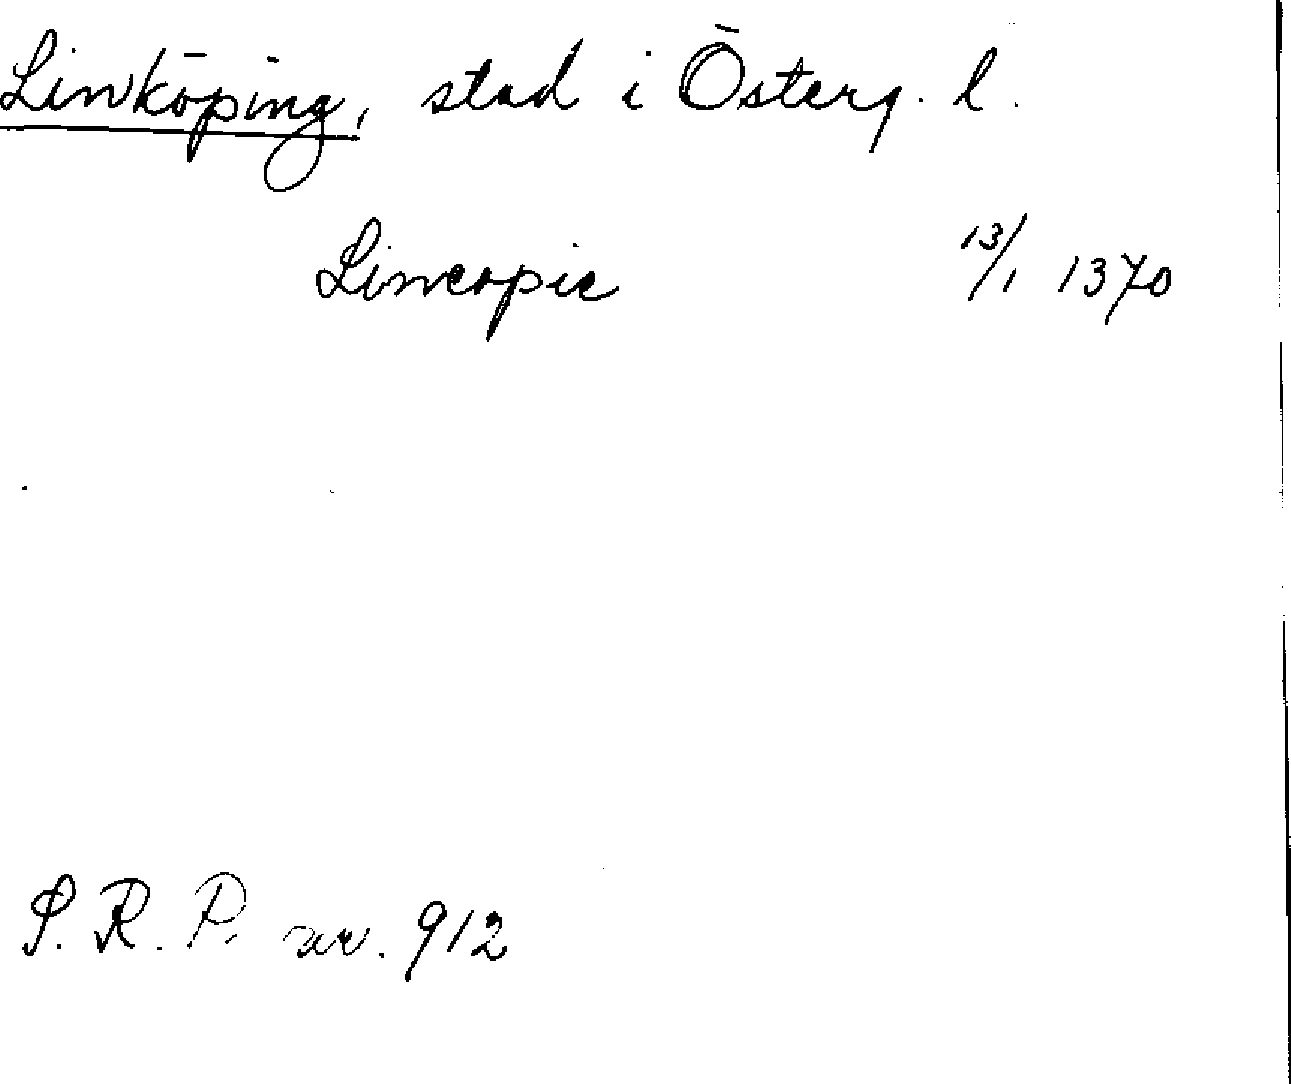 Linköping, stad i Österg. l.
Lincopie 13/1 1370
S. R. P. nr. 912